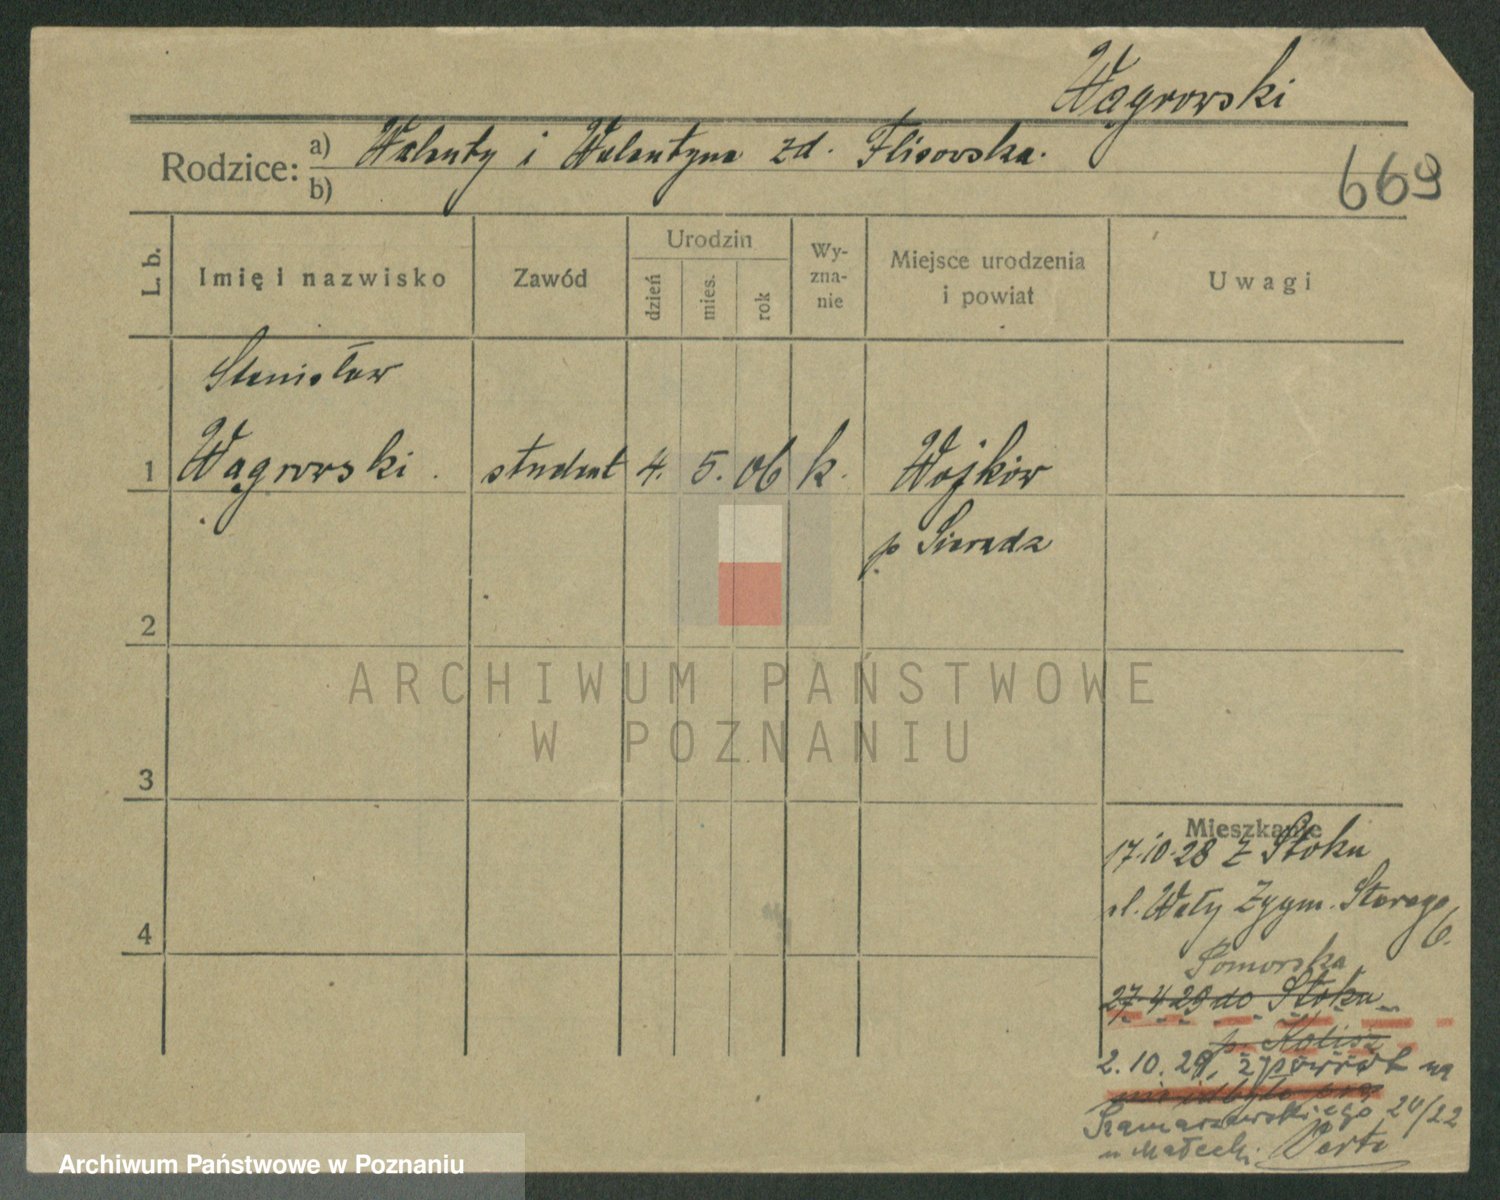 Wągrowski
Rodzice: a) Walenty i Walentyna zd. Flisowska.
b)
669
L. b.
Imię i nazwisko
Zawód
Urodzin
dzień
mies.
rok
Wy-
zna-
nie
Miejsce urodzenia
i powiat
Uwagi
Stanisław
1 Wągrowski . student 4. 5. 06 k. Wojków
p Sieradz
2
3
4
Mieszkanie
17.10.28 z Stoku
ul. Wały Zygm. Starego
6.
Pomorska
27.4 29 do Stoku
p. Kalisz
2.10.29, z powrót na
nie odbyło
Szamarzewskiego 20/22
u Małecki.
ARCHIWUM PAŃSTWOWE
W POZNANIU
Archiwum Państwowe w Poznaniu